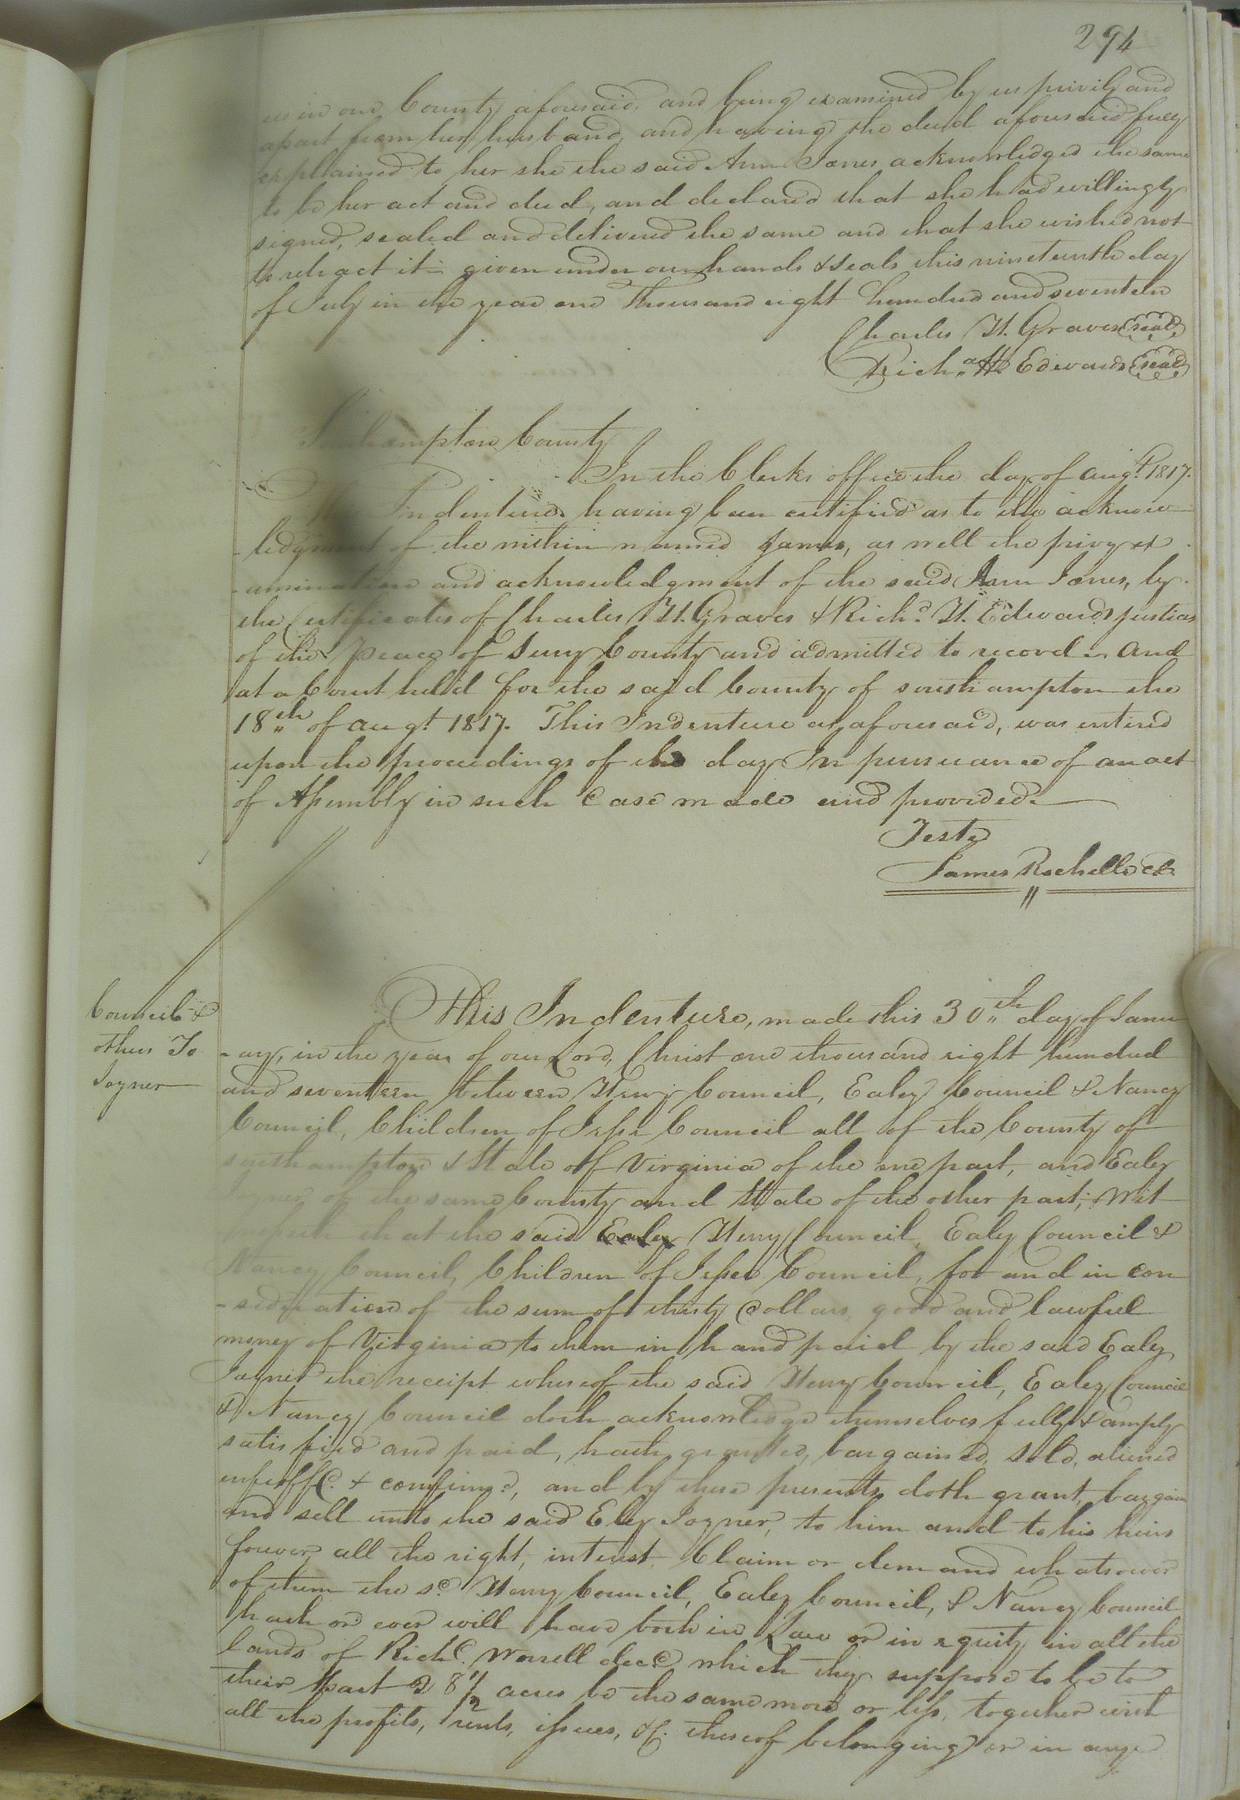 294
us in our County aforesaid, and being examined by us privily and
apart from her husband, and having the deed aforesaid fully
explained to her she the said Ann Jones acknowledged the same
to be her act and deed, and declared that she had willingly
signed, sealed and delivered the same and that she wished not
to retract it given under our hands & seals this nineteenth day
of July in the year one Thousand eight hundred and seventeen
Charles H. Graves (seal)
Richd. H. Edwards (seal)
Southampton County
In the Clerks office the day of Augt. 1817.
This Indenture having been certified as to the acknow
-ledgment of the within named James, as well the privy ex
-amination and acknowledgment of the said Ann Jones, by
the Certificates of Charles H. Graves & Richd. H. Edwards justices
of the Peace of Surry County and admitted to record. And
at a Court held for the said County of Southampton the
18th of Augt. 1817. This Indenture as aforesaid, was entered
upon the proceedings of the day In pursuance of an act
of Assembly in such case made and provided.
Teste
James Rochelle Ck
Council &
others To
Joyner
This Indenture, made this 30th day of Janu
-ary, in the year of our Lord Christ one thousand eight hundred
and seventeen between Henry Council, Ealey Council & Nancy
Council, Children of Jesse Council all of the County of
Southampton & State of Virginia of the one part, and Ealey
Joyner of the same County and State of the other part; Wit
-nesseth that the said Ealey Henry Council, Ealey Council &
Nancy Council, Children of Jesse Council, for and in con
-sideration of the sum of thirty dollars good and lawful
money of Virginia to them in hand paid by the said Ealey
Joyner the receipt whereof the said Henry Council, Ealey Council
& Nancy Council doth acknowledge themselves fully & amply
satisfied and paid, hath granted, bargained, sold, aliened
enfeoffd. & confirmd., and by these presents doth grant, bargain
and sell unto the said Eley Joyner, to him and to his heirs
forever, all the right, interest, Claim or demand whatsoever
of them the sd. Henry Council, Ealey Council, & Nancy Council
hath or ever will have both in Law or in equity in all the
lands of Richd. Worrell decd. which they suppose to be to
their part 8 1/2 acres be the same more or less, together with
all the profits, rents, issues, &c. thereof belonging or in any